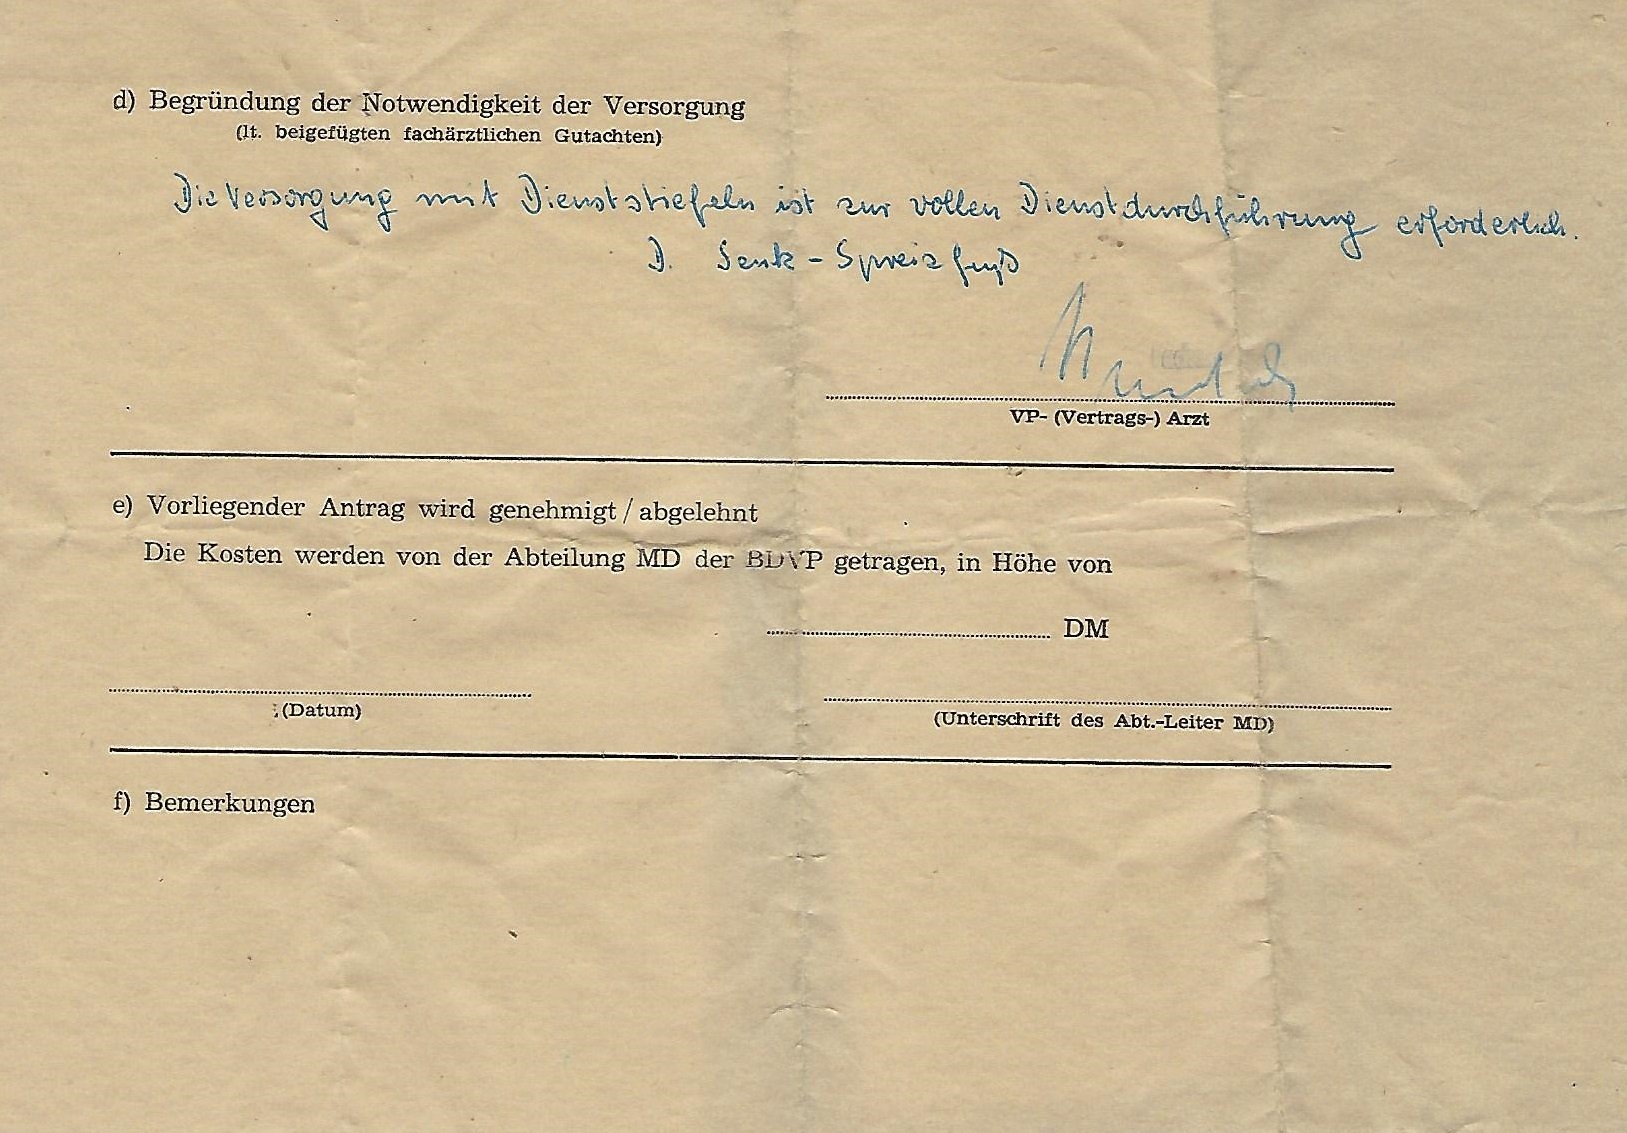 d) Begründung der Notwendigkeit der Versorgung
(lt. beigefügten fachärztlichen Gutachten)
Die Versorgung mit Dienststiefeln ist zur vollen Dienstdurchführung erforderlich.
D. Senk-Spreizfuß
VP- (Vertrags-) Arzt
e) Vorliegender Antrag wird genehmigt / abgelehnt
Die Kosten werden von der Abteilung MD der BDVP getragen, in Höhe von
DM
(Datum)
(Unterschrift des Abt.-Leiter MD)
f) Bemerkungen